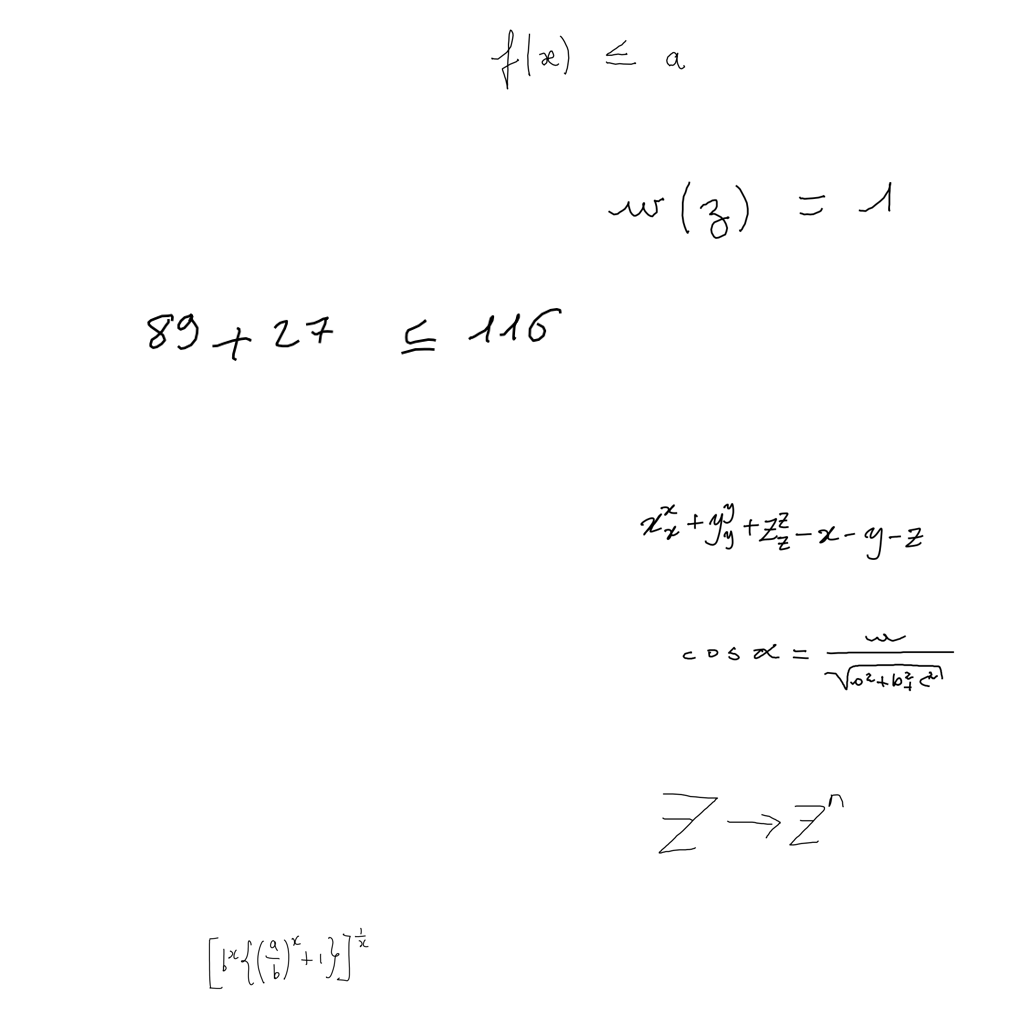 f(x) ≤ a
w(z) = 1
89 + 27 ≤ 116
x_x^x + y_y^y + z_z^z - x - y - z
cos α = \frac{w}{\sqrt{a^2 + b^2 + c^2}}
z → z^n
[b^x{(\frac{a}{b})^x + 1}]^{\frac{1}{x}}